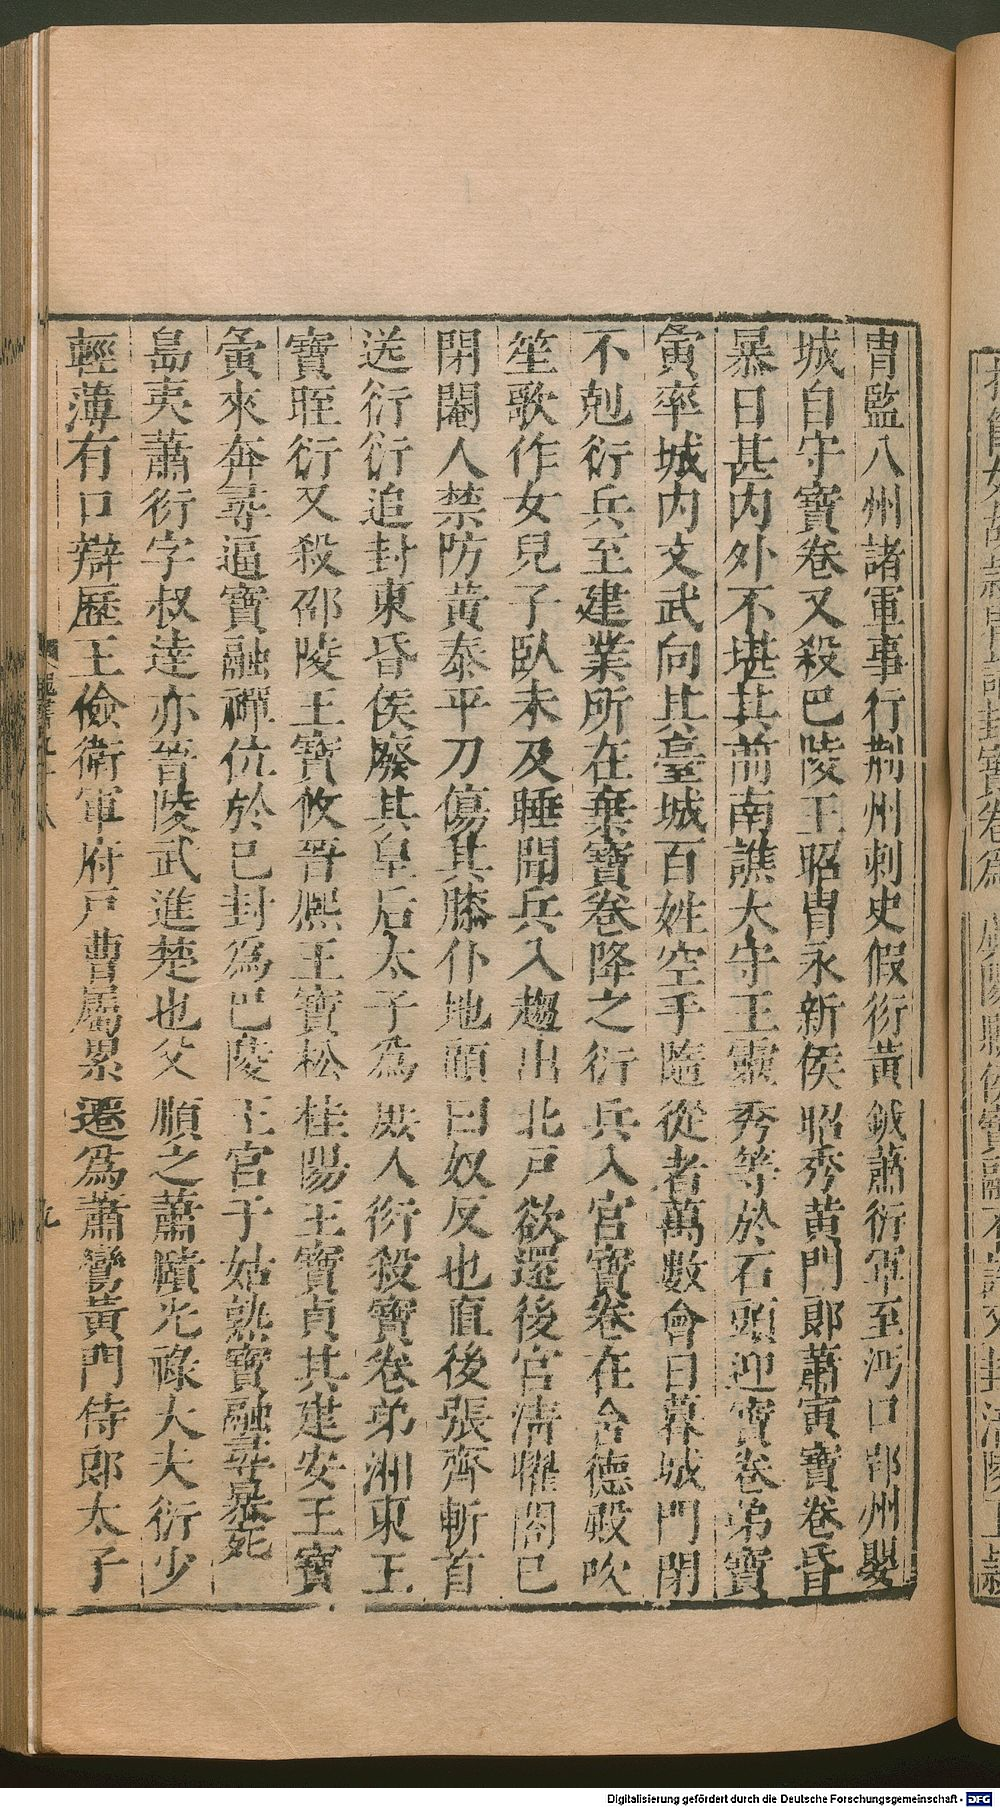 胄監八州諸軍事行荊州刺史假衍黃鉞蕭衍軍至沔口郢州嬰
城自守寶卷又殺巴陵王昭胄永新侯昭秀黃門郎蕭寅寶卷昏
暴日甚內外不堪其前南譙大守王靈秀等於石頭迎寶卷弟寶
寅率城內文武向其臺城百姓空手隨從者萬數會日暮城門閉
不剋衍兵至建業所在棄寶卷降之衍兵入宮寶卷在含德殿吹
笙歌作女兒子臥未及睡聞兵入趨出北戶欲還後宮清曜閤已
閉閹人禁防黃泰平刀傷其膝仆地顧曰奴反也直後張齊斬首
送衍衍追封東昏侯廢其皇后太子為庶人衍殺寶卷弟湘東王
寶晊衍又殺邵陵王寶攸晉熙王寶松桂陽王寶貞其建安王寶
寅來奔尋逼寶融禪位於己封為巴陵王宮于姑熟寶融尋暴死
島夷蕭衍字叔達亦晉陵武進楚也父順之蕭賾光祿大夫衍少
輕薄有口辯歷王儉衛軍府戶曹屬累遷爲蕭鸞黃門侍郎太子
九
Digitalisierung gefördert durch die Deutsche Forschungsgemeinschaft - DFG